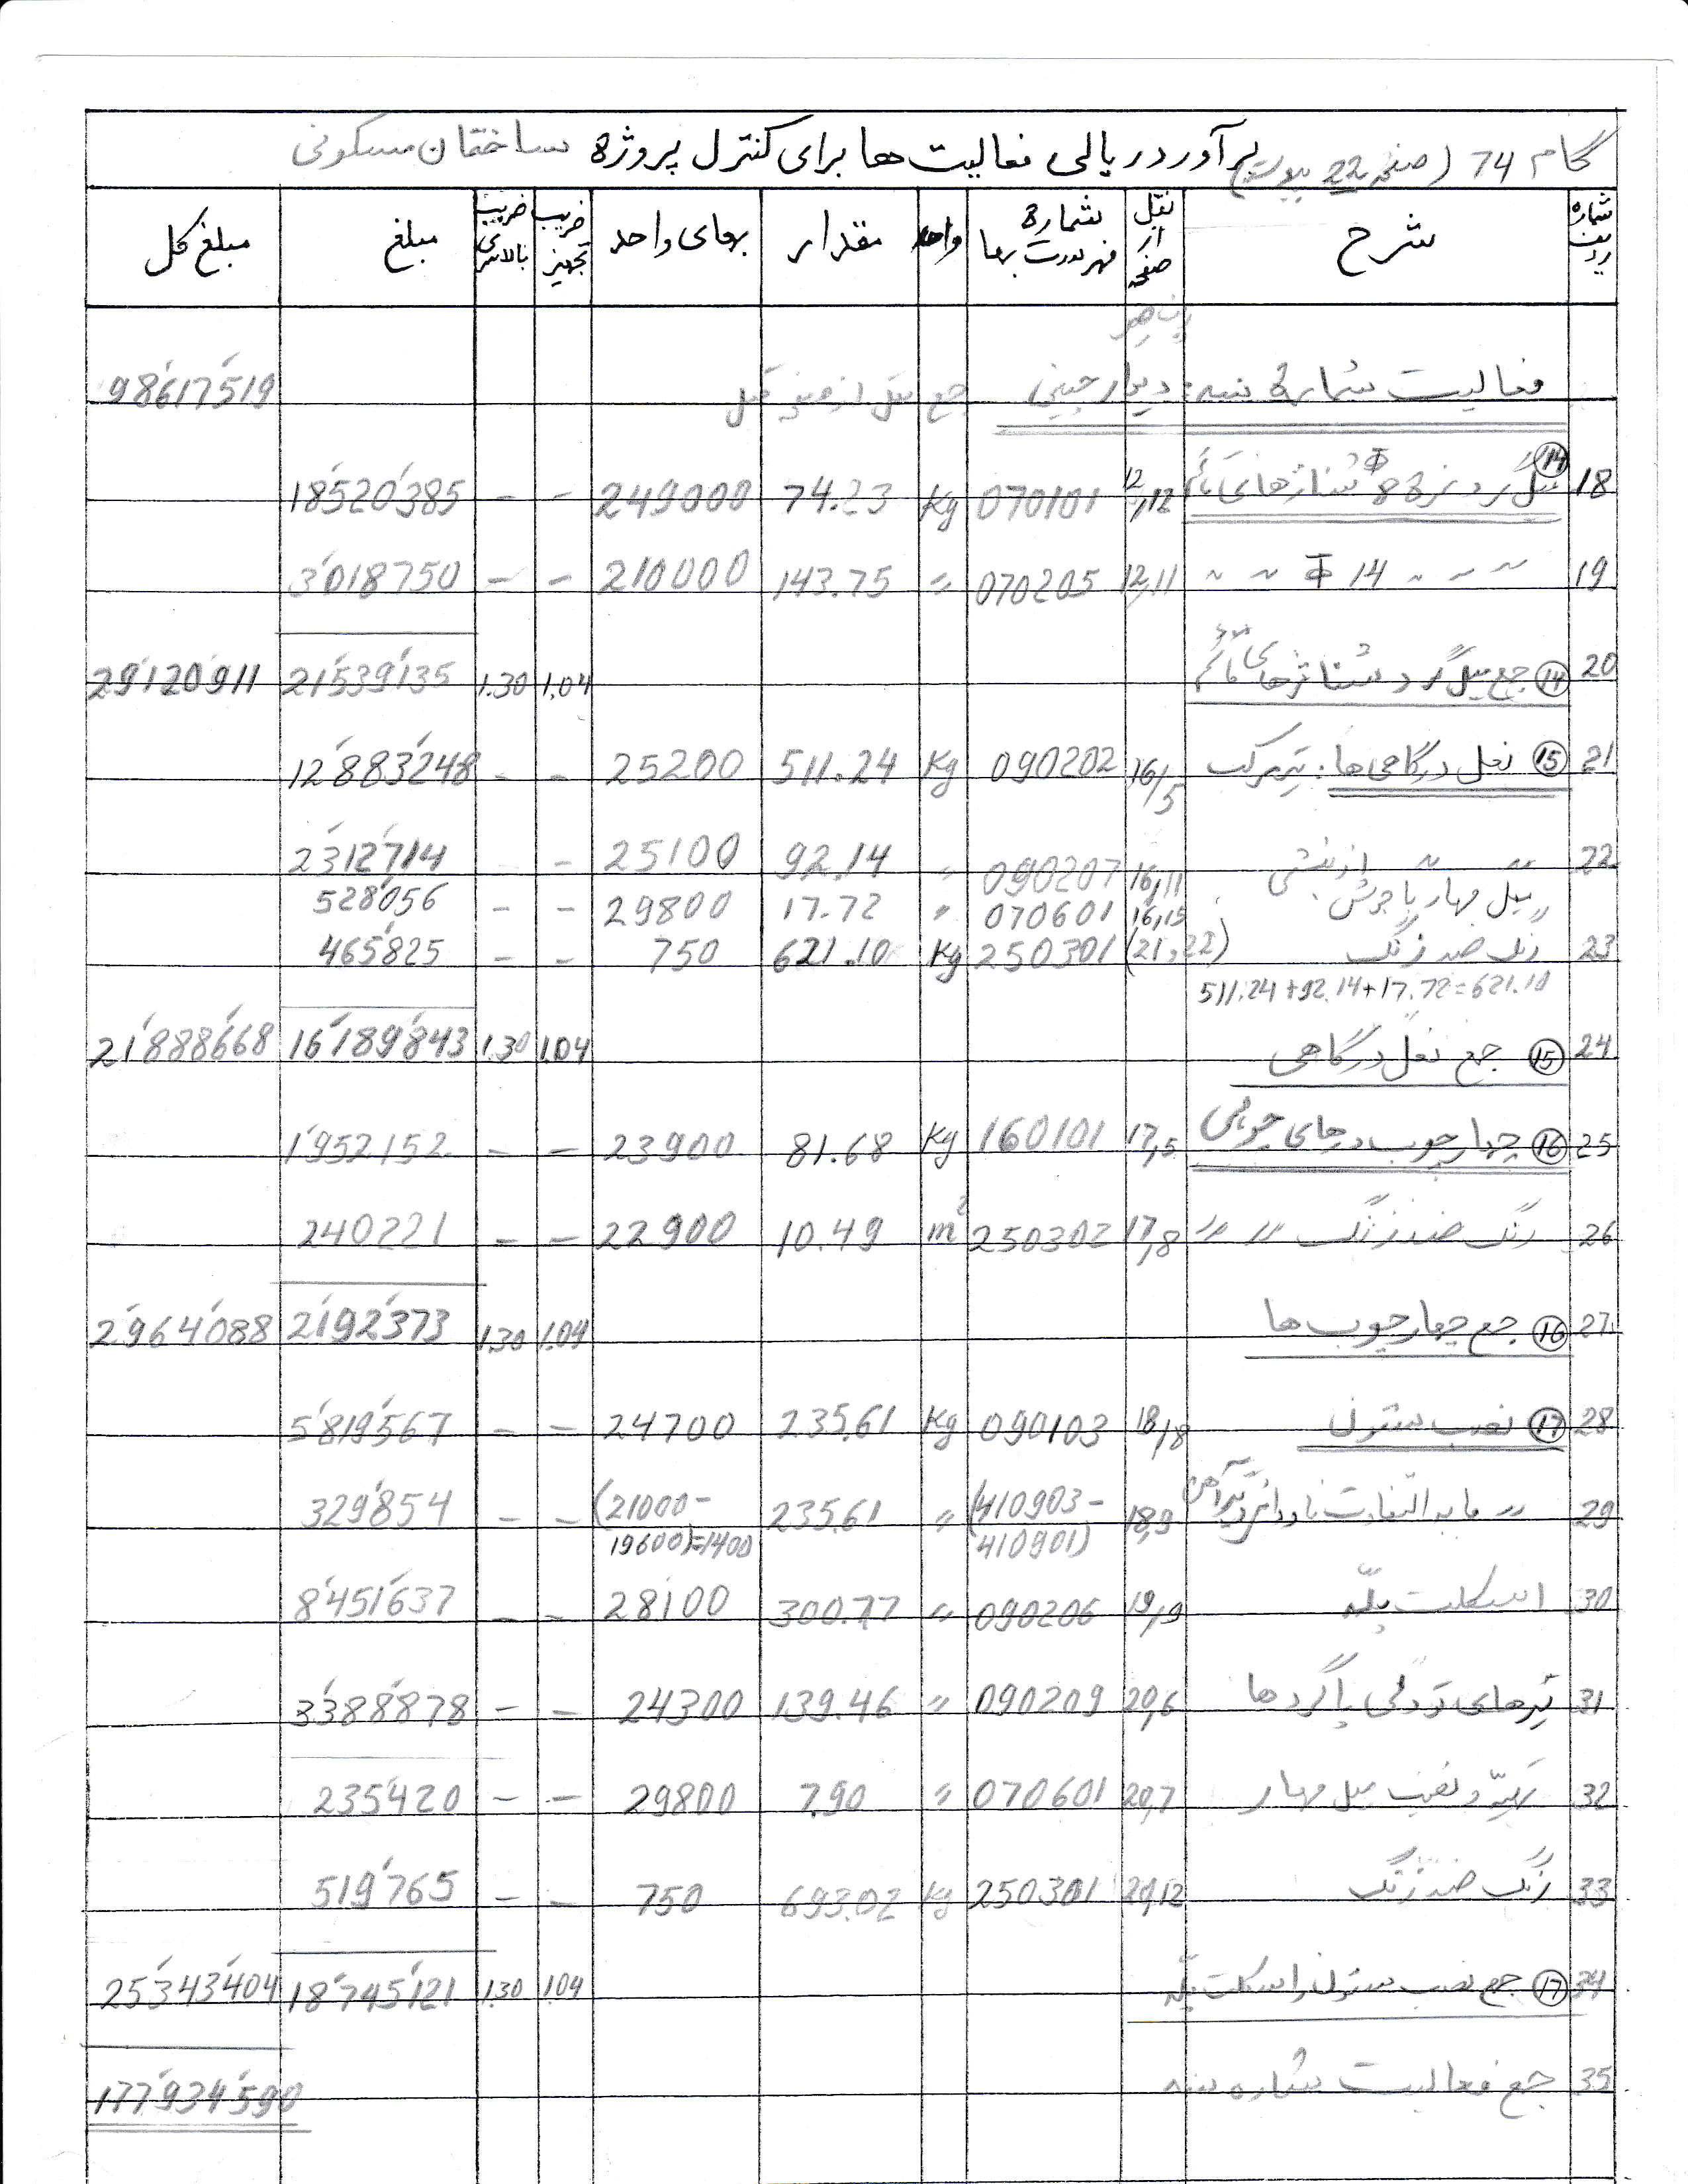 گام 74 (صفحه 22 پلات) برآورد ریالی فعالیت ها برای کنترل پروژه ساختمان مسکونی
شماره ردیف شرح نقل از صفحه شماره فهرست بها واحد مقدار بهای واحد ضریب تجهیز ضریب بالاسری مبلغ مبلغ کل
فعالیت شماره سه: دیوار چینی جمع نقل از صفحه قبل 98'617'519
18 ⑭ میل گرد نمره 8 Φ شناژهای قائم 12,12 070101 Kg 74.23 249000 - - 18'520'385
19 〃 〃 〃 Φ 14 〃 〃 12,11 070205 〃 143.75 210000 - - 3'018750
20 ⑭ جمع میل گرد شناژهای قائم 1.04 1.30 21'539'135 29'120'911
21 ⑮ نعل درگاهی ها: تیر مرکب 16/5 090202 Kg 511.24 25200 - - 12'883'248
22 〃 〃 از نبشی 16,11 090207 〃 92.14 25100 - - 2'312'714
〃 میل مهار با جوش 16,15 070601 〃 17.72 29800 - - 528'056
23 رنگ ضد زنگ (21,22) 250301 Kg 621.10 750 - - 465'825
511.24+92.14+17.72=621.10
24 ⑮ جمع نعل درگاهی 1.04 1.30 16'189'843 21'888'668
25 ⑯ چهارچوب درهای چوبی 17,5 160101 Kg 81.68 23900 - - 1'952152
26 رنگ ضد زنگ 〃 〃 17,8 250302 m² 10.49 22900 - - 240221
27 ⑯ جمع چهارچوب ها 1.04 1.30 2'192'373 2'964'088
28 ⑰ نصب ستون 18/8 090103 Kg 235.61 24700 - - 5'819'567
29 〃 مابه التفاوت ناودانی و تیرآهن 18,9 (410903-410901) 〃 235.61 (21000-19600)=1400 - - 329'854
30 اسکلت پله 19,9 090206 〃 300.77 28100 - - 8'451'637
31 تیرهای تودلی پاگردها 20,6 090209 〃 139.46 24300 - - 3'388'878
32 تهیه و نصب میل مهار 20,7 070601 〃 7.90 29800 - - 235'420
33 رنگ ضد زنگ 20,12 250301 Kg 693.02 750 - - 519'765
34 ⑰ جمع نصب ستون و اسکلت پله 1.04 1.30 18'745'121 25'343'404
35 جمع فعالیت شماره سه 177'934'590